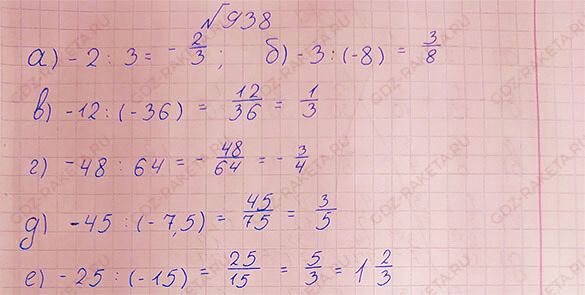 №938
а) -2 : 3 = -2/3; б) -3 : (-8) = 3/8
в) -12 : (-36) = 12/36 = 1/3
г) -48 : 64 = -48/64 = -3/4
д) -45 : (-7,5) = 45/75 = 3/5
е) -25 : (-15) = 25/15 = 5/3 = 1 2/3
GDZ-RAKETA.RU